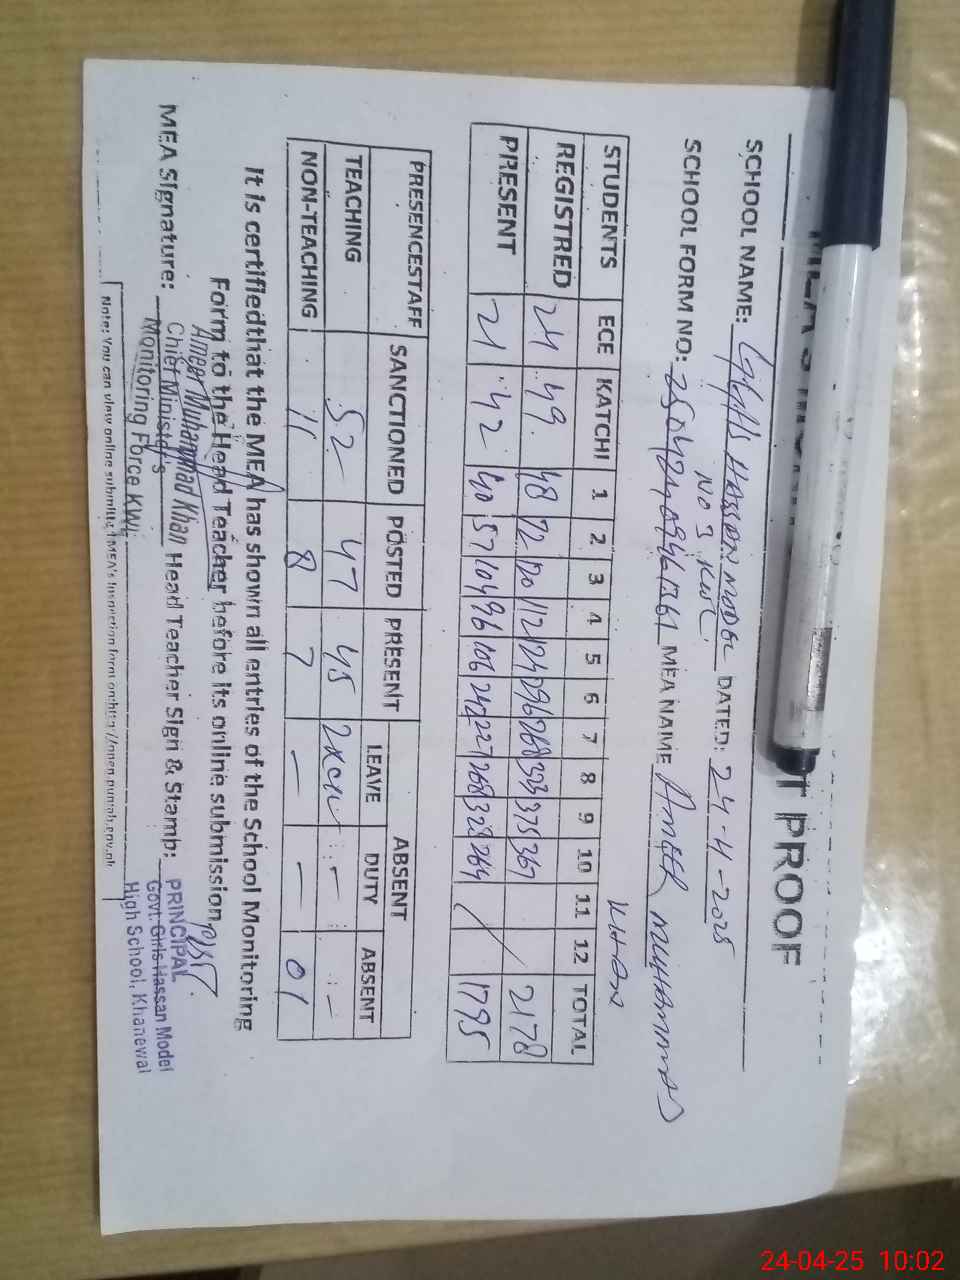 T PROOF
SCHOOL NAME: GGHS HASSAN MODEL DATED: 24-4-2025
NO 3 KWL
SCHOOL FORM NO: MEA NAME AMEER MUHAMMAD
KHAN
STUDENTS ECE KATCHI 1 2 3 4 5 6 7 8 9 10 11 12 TOTAL
REGISTRED 24 49 48 72 120 112 124 296 268 333 375 367 2178
PRESENT 21 42 40 57 104 96 106 242 227 268 328 264 / 1795
PRESENCESTAFF SANCTIONED POSTED PRESENT ABSENT
LEAVE DUTY ABSENT
TEACHING 52 47 45 - -
NON-TEACHING 11 8 7 - - 01
It is certifiedthat the MEA has shown all entries of the School Monitoring
Form to the Head Teacher before its online submission
MEA Signature: Head Teacher Sign & Stamp:
Ameer Muhammad Khan
Chief Minister's
Monitoring Force KWL
PRINCIPAL
Govt. Girls Hassan Model
High School, Khanewal
Note: You can view online submitted MEA's Inspection form on http://open.punjab.gov.pk
24-04-25 10:02